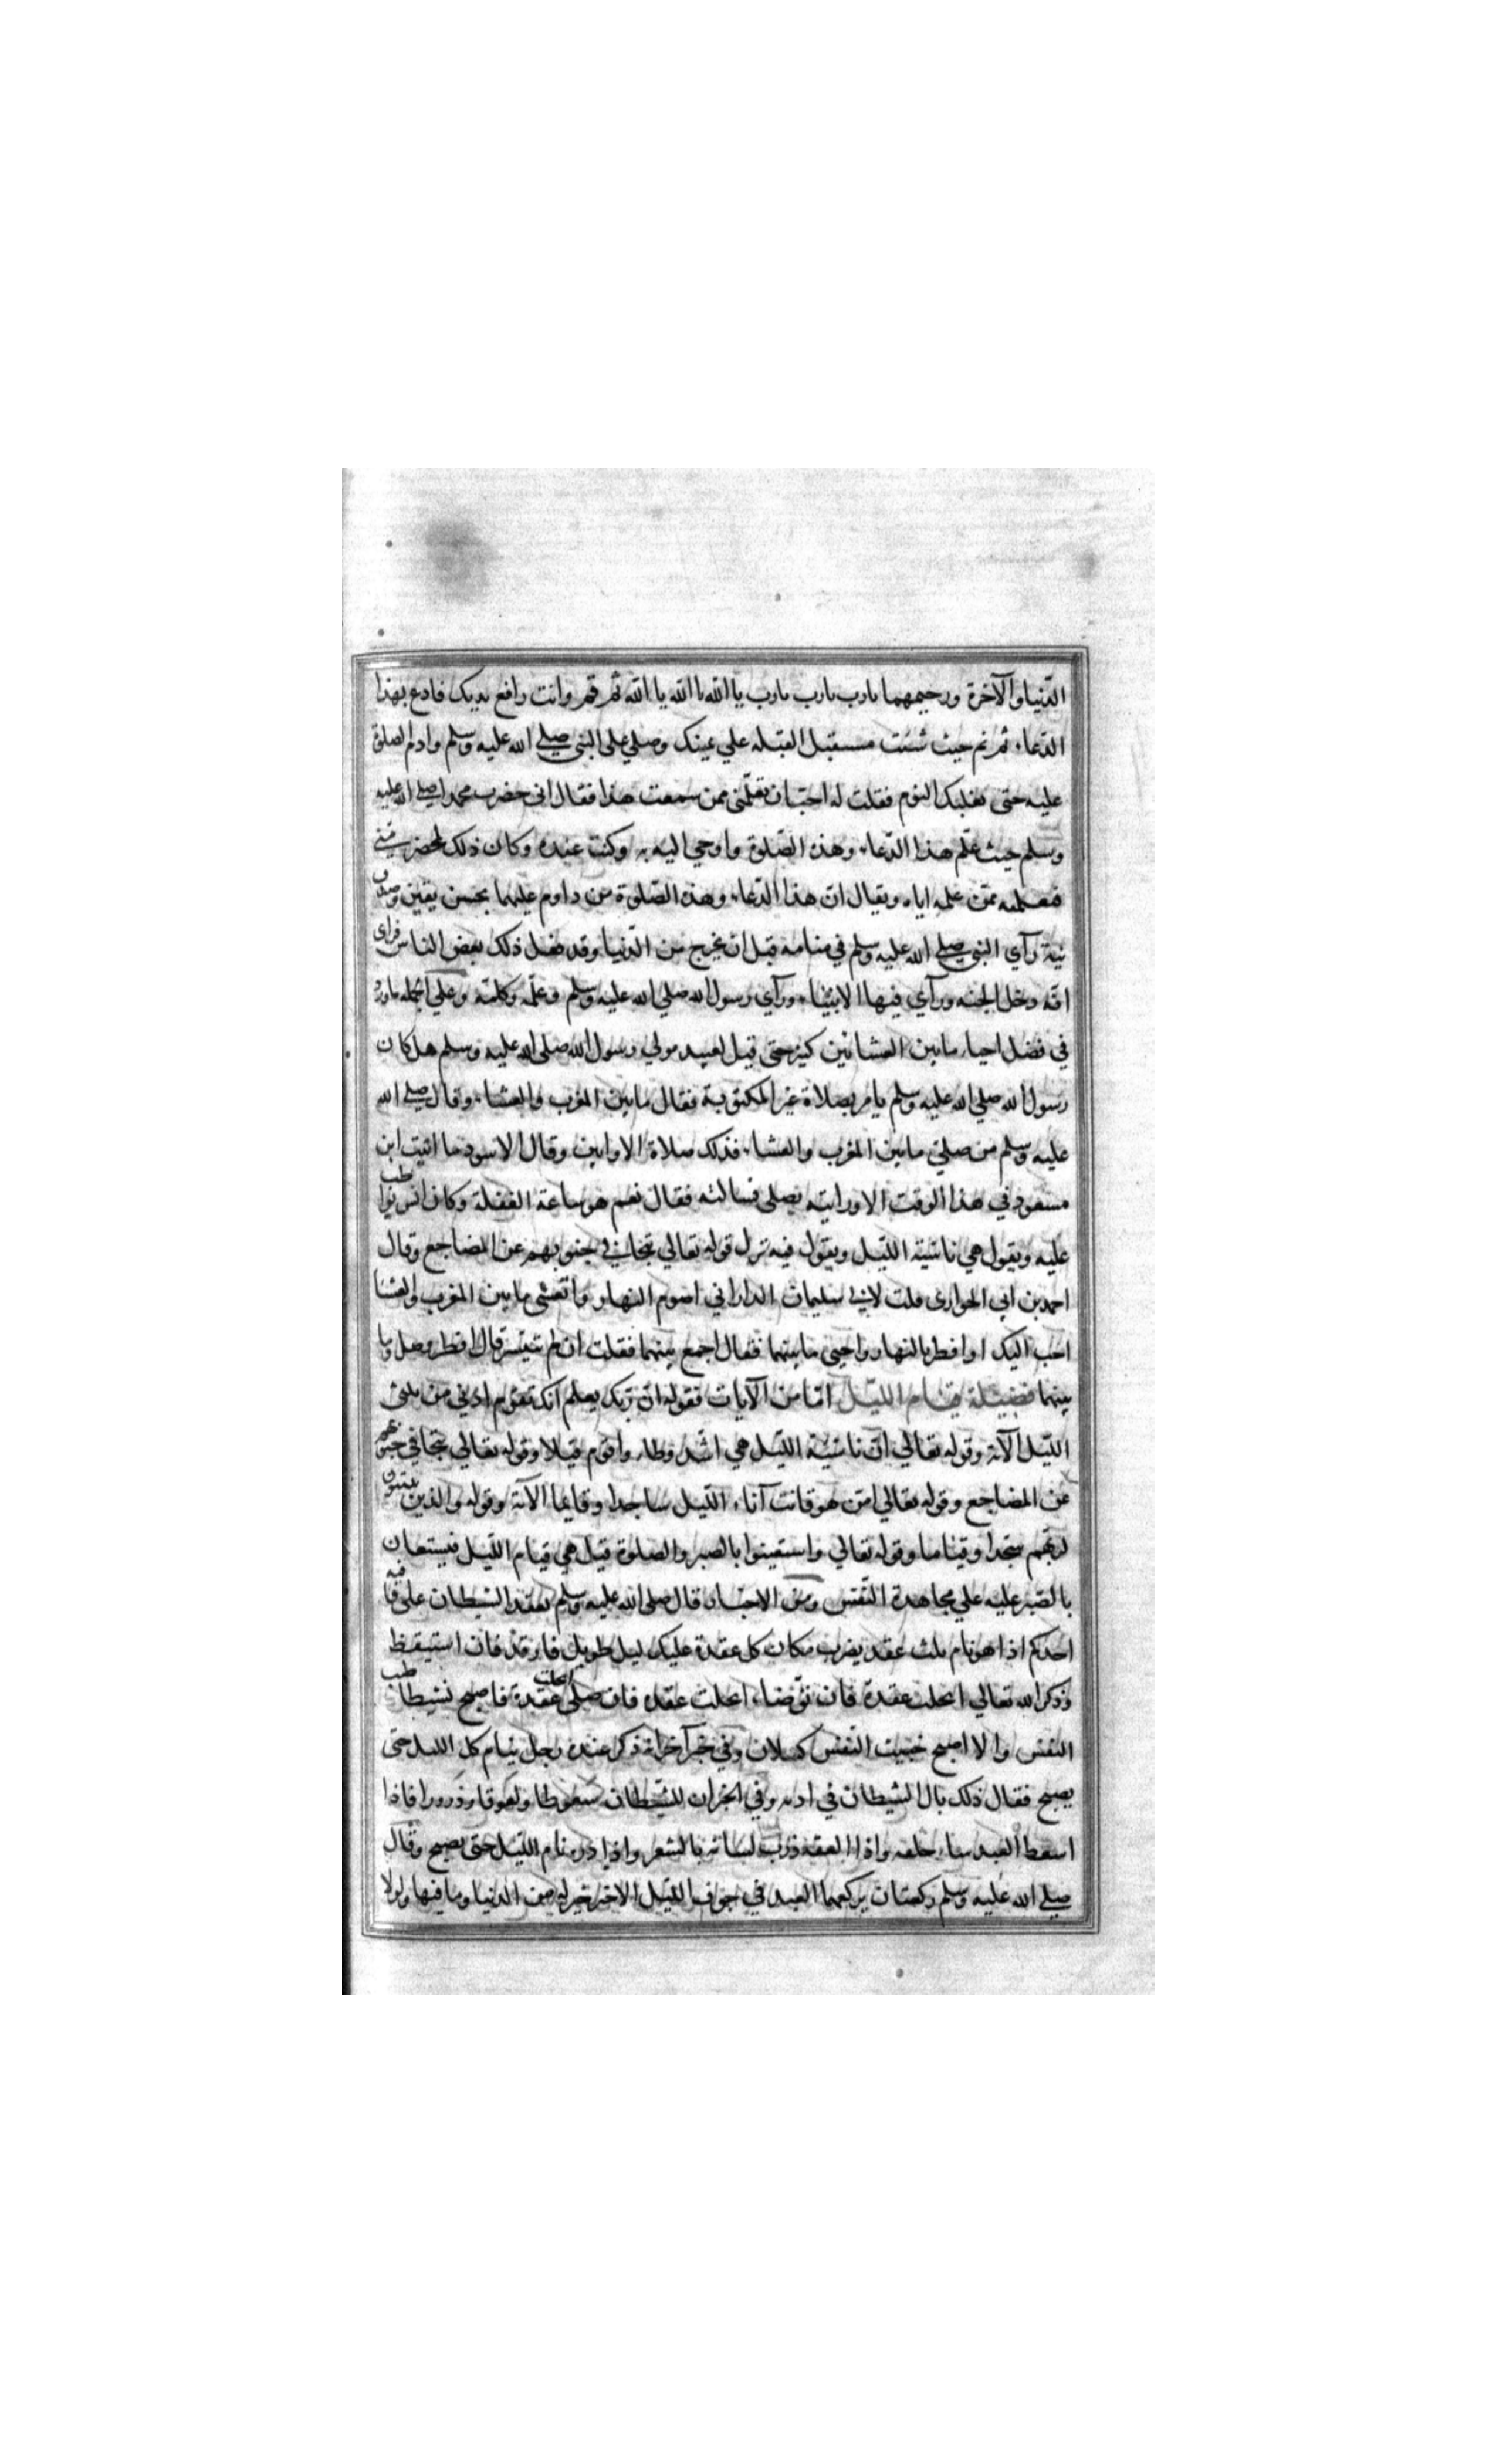 الدّنيا والآخرة ورحيمهما يا رب يا رب يا رب يا الله يا الله يا الله ثم قم وانت رافع يديك فادع بهذا
الدّعاء ثم نم حيث شئت مستقبل القبله علي يمينك وصلي علي النبي صلي الله عليه وسلم وادم الصلوة
عليه حتى يغلبك النوم فقلت له احبّ ان تعلّمني ممن سمعت هذا فقال اني حضرت محمدا صلي الله عليه
وسلم حيث علّم هذا الدّعاء وهذه الصّلوة واوحي اليه به وكنت عنده وكان ذلك بمحضر منّي
فتعلمته ممّن علمه اياه ويقال ان هذا الدّعاء وهذه الصّلوة من داوم عليهما بحسن يقين وصدق
نيّة رآي النبي صلي الله عليه وسلم في منامه قبل ان يخرج من الدّنيا وقد فعل ذلك بعض الناس فراي
انّه دخل الجنه ورآي فيها الانبياء ورآي رسول الله صلي الله عليه وسلم وعلّمه وكلمه وعلي الجمله ما ورد
في فضل احياء ما بين العشائين كثير حتى قيل لعبيد مولي رسول الله صلى الله عليه وسلم هل كان
رسول الله صلي الله عليه وسلم يامر بصلاة غير المكتوبة فقال ما بين المغرب والعشاء وقال صلي الله
عليه وسلم من صلّي ما بين المغرب والعشاء فذلك صلاة الاوابين وقال الاسود ما اتيت ابن
مسعود في هذا الوقت الا ورايته يصلي فسالته فقال نعم هو ساعة الغفلة وكان انس يواظب
عليه ويقول هي ناشئة اللّيل ويقول فيه نزل قوله تعالي تتجافي جنوبهم عن المضاجع وقال
احمد بن ابي الحواري قلت لابي سليمان الداراني اصوم النهار واتعشى ما بين المغرب والعشا
احب اليك او افطر بالنهار واحيي ما بينهما فقال اجمع بينهما فقلت ان لم تتيسر قال افطر وصل ما
بينهما فضيلة قيام اللّيل امّا من الآيات فقوله انّ ربّك يعلم انك تقوم ادني من ثلثي
اللّيل الآية وقوله تعالي انّ ناشئة اللّيل هي اشد وطاء واقوم قيلا وقوله تعالي تتجافي جنوبهم
عن المضاجع وقوله تعالي امّن هو قانت آناء اللّيل ساجدا وقايما الآية وقوله والذين يبيتون
لربهم سجّدا وقياما وقوله تعالي واستعينوا بالصبر والصلوة قيل هي قيام اللّيل فيستعان
بالصبر عليه علي مجاهدة النّفس ومن الاخبار قال صلى الله عليه وسلم يعقد الشيطان علي قافيه
احدكم اذا هو نام ثلث عقد يضرب مكان كل عقدة عليك ليل طويل فارقد فان استيقظ
وذكر الله تعالي انحلت عقدة فان توّضاء انحلت عقده فان صلّي انحلت عقدة فاصبح نشيطا طيب
النفس والا اصبح خبيث النّفس كسلان وفي خبر آخر انه ذكر عنده رجل ينام كل الليل حتى
يصبح فقال ذلك بال الشيطان في اذنه وفي الخبر ان للشّيطان سعوطا ولعوقا وذرورا فاذا
اسقط العبد ساء خلقه واذا العقه ذرب لسانه بالشعر واذا ذره نام اللّيل حتى يصبح وقال
صلي الله عليه وسلم ركعتان يركعهما العبد في جوف اللّيل الاخر خير له من الدنيا وما فيها ولولا